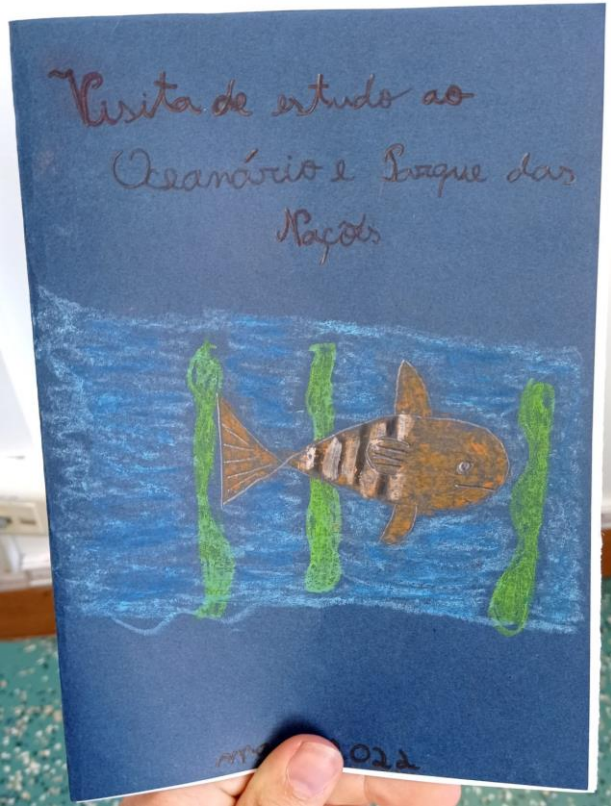 Visita de estudo ao
Oceanário e Parque das
Nações
022